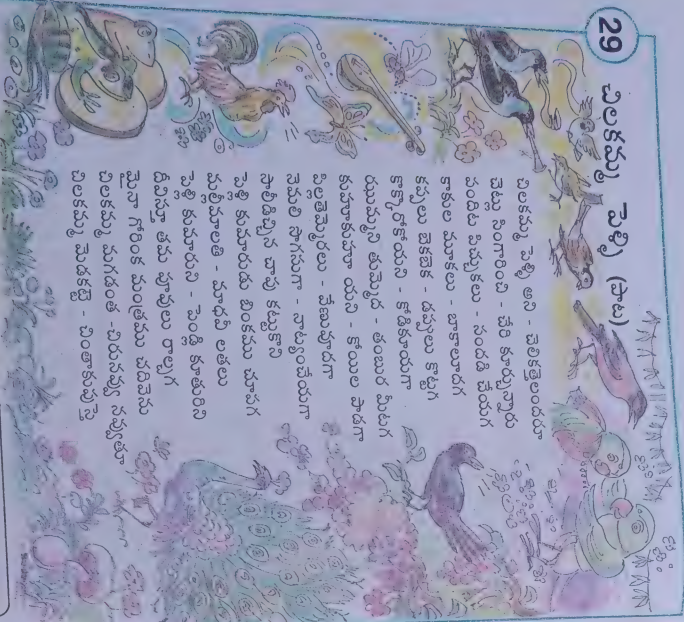 29 చిలకమ్మ పెళ్ళి (పాట)
చిలకమ్మ పెళ్ళి అని - చెలికత్తెలందరూ
చెట్టు సింగారించి - చేరి కూర్చున్నారు
పందిట పిచ్చుకలు - సందడి చేయగ
కాకుల మూకలు - బాకాలూదగ
కప్పలు బెకబెక - డప్పులు కొట్టగ
కొక్కొరోకోయని - కోడికూయగా
ఝుమ్మని తుమ్మెద - తంబుర మీటగ
కుహూకుహూ యని - కోయిల పాడగా
పిల్లతెమ్మెరలు - వేణువూదగా
నెమలి సొగసుగా - నాట్యంచేయగా
సాలీడిచ్చిన చాపు కట్టుకొని
పెళ్లి కుమారుడు బింకము చూపగ
మల్లీమాలతి - మాధవీ లతలు
పెళ్లి కుమారుని - పెండ్లి కూతురిని
దీవిస్తూ తమ పూవులు రాల్చగ
మైనా గోరింక మంత్రము చదివెను
చిలకమ్మ మగడంత -చిరునవ్వు నవ్వుతూ
చిలకమ్మ మెడకట్టె - చింతాకుపుస్తె